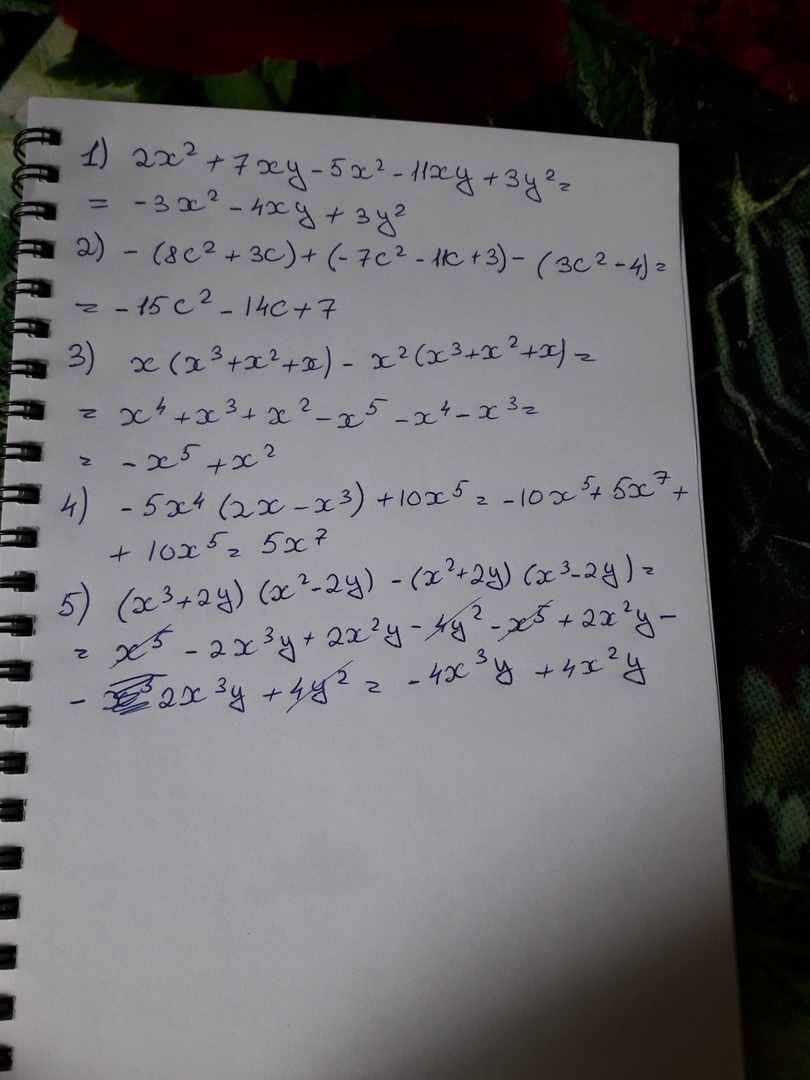 1) 2x² + 7xy - 5x² - 11xy + 3y² =
= -3x² - 4xy + 3y²
2) - (8c² + 3c) + (-7c² - 11c + 3) - (3c² - 4) =
= -15c² - 14c + 7
3) x (x³ + x² + x) - x² (x³ + x² + x) =
= x⁴ + x³ + x² - x⁵ - x⁴ - x³ =
= -x⁵ + x²
4) -5x⁴ (2x - x³) + 10x⁵ = -10x⁵ + 5x⁷ +
+ 10x⁵ = 5x⁷
5) (x³ + 2y) (x² - 2y) - (x² + 2y) (x³ - 2y) =
= x⁵ - 2x³y + 2x²y - 4y² - x⁵ + 2x²y -
- 2x³y + 4y² = -4x³y + 4x²y